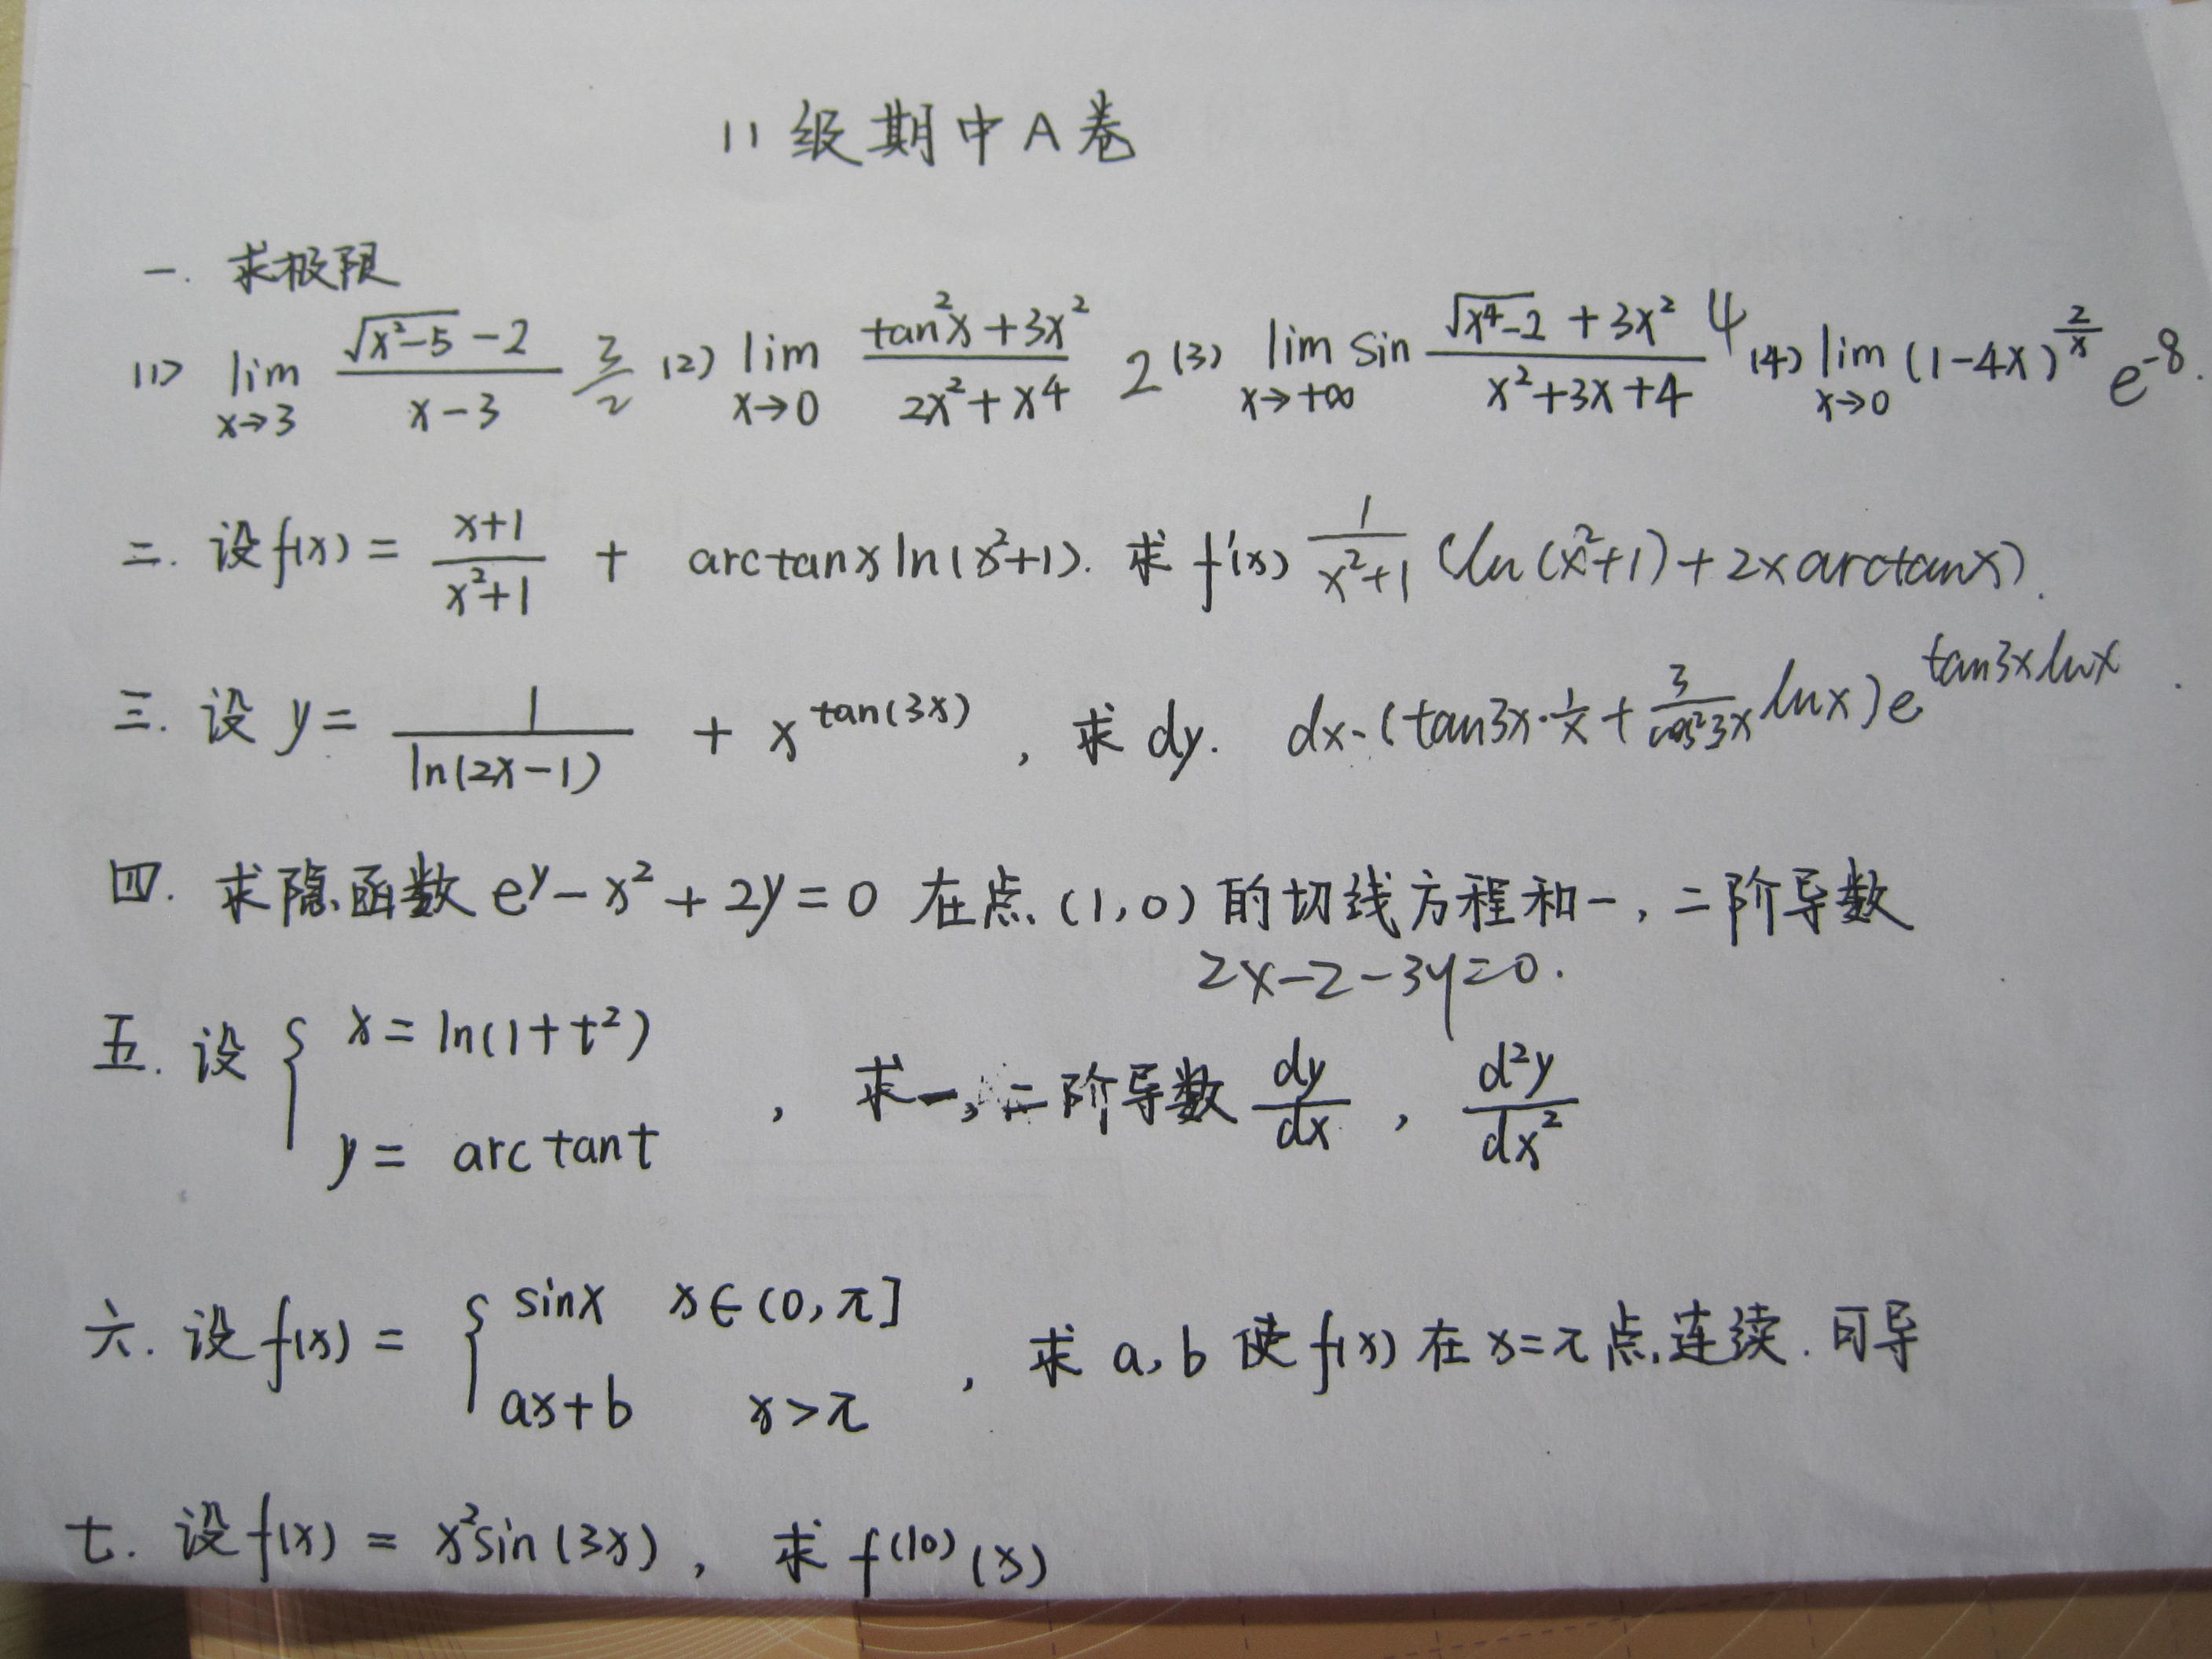 11级期中A卷
一. 求极限
(1) lim x→3 (√(x²-5) - 2)/(x-3) 3/2 (2) lim x→0 (tan²x+3x²)/(2x²+x⁴) 2 (3) lim x→+∞ sin (√(x⁴-2) + 3x²)/(x²+3x+4) 4 (4) lim x→0 (1-4x)^(2/x) e^-8.
二. 设f(x) = (x+1)/(x²+1) + arctanx ln(x²+1). 求 f'(x) 1/(x²+1) (ln(x²+1)+2x arctanx).
三. 设 y = 1/ln(2x-1) + x^tan(3x), 求 dy. dx·(tan3x·1/x + 3/cos²3x lnx)e^tan3x lnx.
四. 求隐函数 e^y - x² + 2y = 0 在点(1,0)的切线方程和一,二阶导数
2x-2-3y=0.
五. 设 { x = ln(1+t²)
y = arctant , 求一,二阶导数 dy/dx , d²y/dx²
六. 设f(x) = { sinx x∈(0,π]
ax+b x>π , 求 a, b 使f(x)在x=π点连续.可导
七. 设f(x) = x²sin(3x), 求 f^(10)(x)